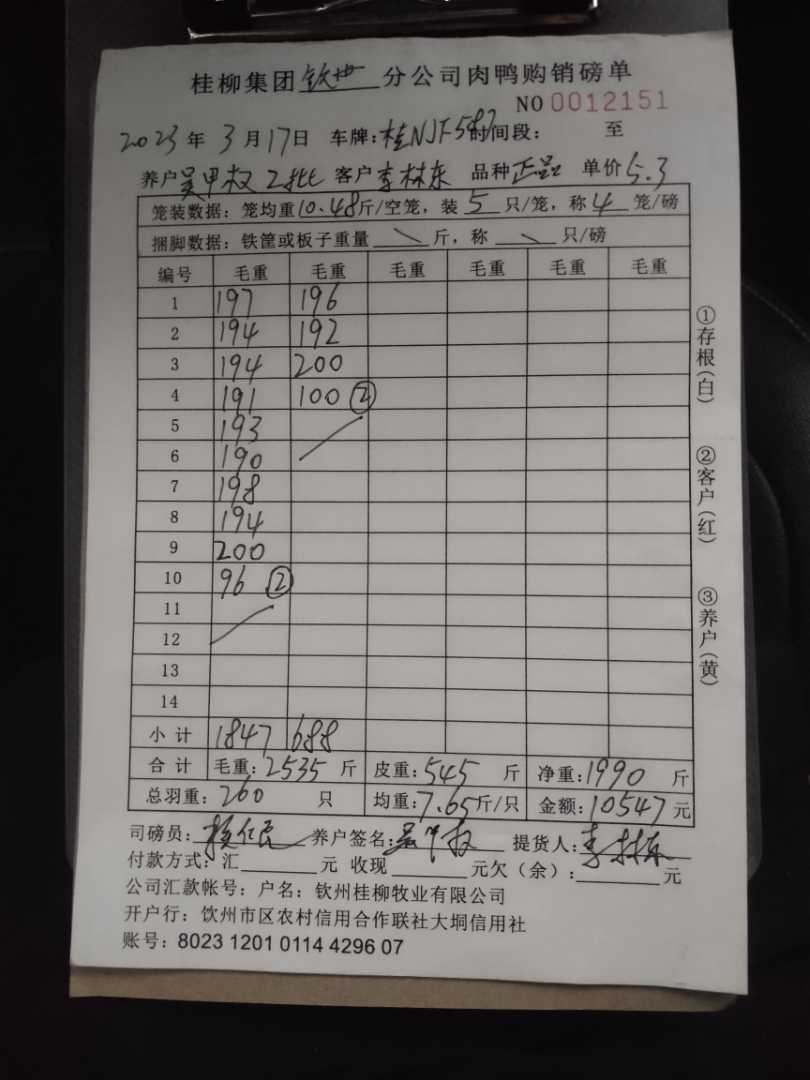 桂柳集团钦州分公司肉鸭购销磅单
NO 0012151
2023年3月17日 车牌:桂NJF587 时间段: 至
养户吴甲权2批 客户李林东 品种正品 单价5.3
笼装数据:笼均重10.48斤/空笼,装5只/笼,称4笼/磅
捆脚数据:铁筐或板子重量\斤,称\只/磅
编号 毛重 毛重 毛重 毛重 毛重 毛重
1 197 196
2 194 192
3 194 200
4 191 100 ②
5 193
6 190
7 198
8 194
9 200
10 96 ②
11
12
13
14
小计 1847 688
合计 毛重:2535斤 皮重:545斤 净重:1990斤
总羽重:260只 均重:7.65斤/只 金额:10547元
司磅员: 养户签名:吴甲权 提货人:李林东
付款方式:汇 元 收现 元欠(余): 元
公司汇款帐号:户名:钦州桂柳牧业有限公司
开户行:饮州市区农村信用合作联社大垌信用社
账号:8023 1201 0114 4296 07
①存根(白)
②客户(红)
③养户(黄)